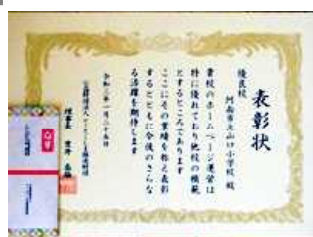 表彰状
優良校
阿南市立山口小学校 殿
貴校のホームページ運営は
特に優れており他校の模範
とするところであります
ここにその業績を称え表彰
するとともに今後のさらな
る活躍を期待します
令和二年一月二十五日
理事長